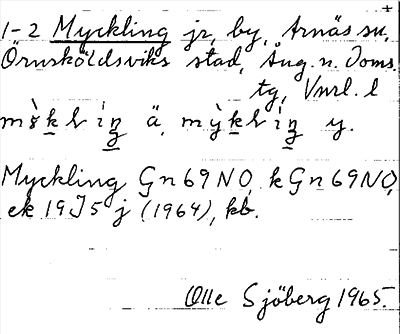 +
1-2 Myckling jr, by, Arnäs sn,
Örnsköldsviks stad, Ång. n. Doms.
tg, Vnrl. l
ä, y.
Myckling Gn 69 NO, k Gn 69 NO,
ek 19J5j (1964), kb.
Olle Sjöberg 1965.